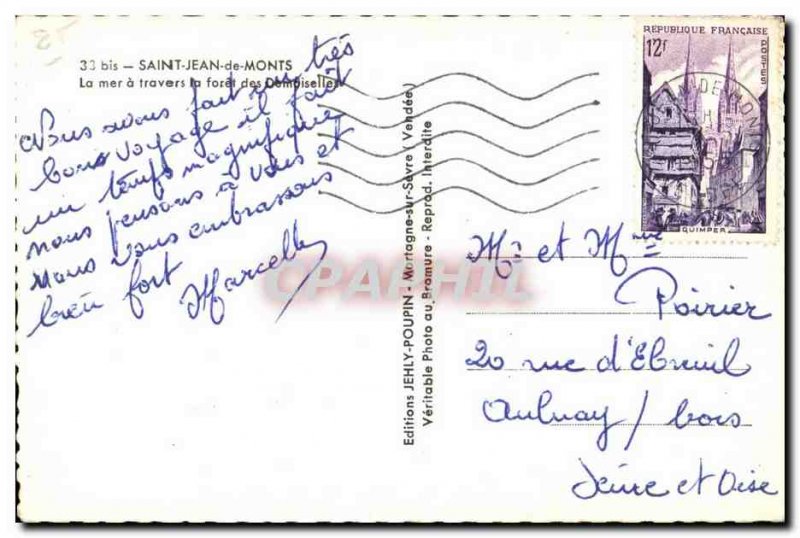 33 bis — SAINT-JEAN-de-MONTS
La mer à travers la forêt des Demoiselles
Nous avons fait un très
bons voyage il fait
un temps magnifique
nous pensons à vous et
Nous vous embrassons
bien fort
Marcelle
Editions JEHLY-POUPIN - Mortagne-sur-Sèvre (Vendée)
Véritable Photo au Bromure - Reprod. Interdite
REPUBLIQUE FRANÇAISE
12f
POSTES
QUIMPER
Mr et Mme
Poirier
20 rue d'Ebreuil
Aulnay / bois
Seine et Oise
CPAPHIL